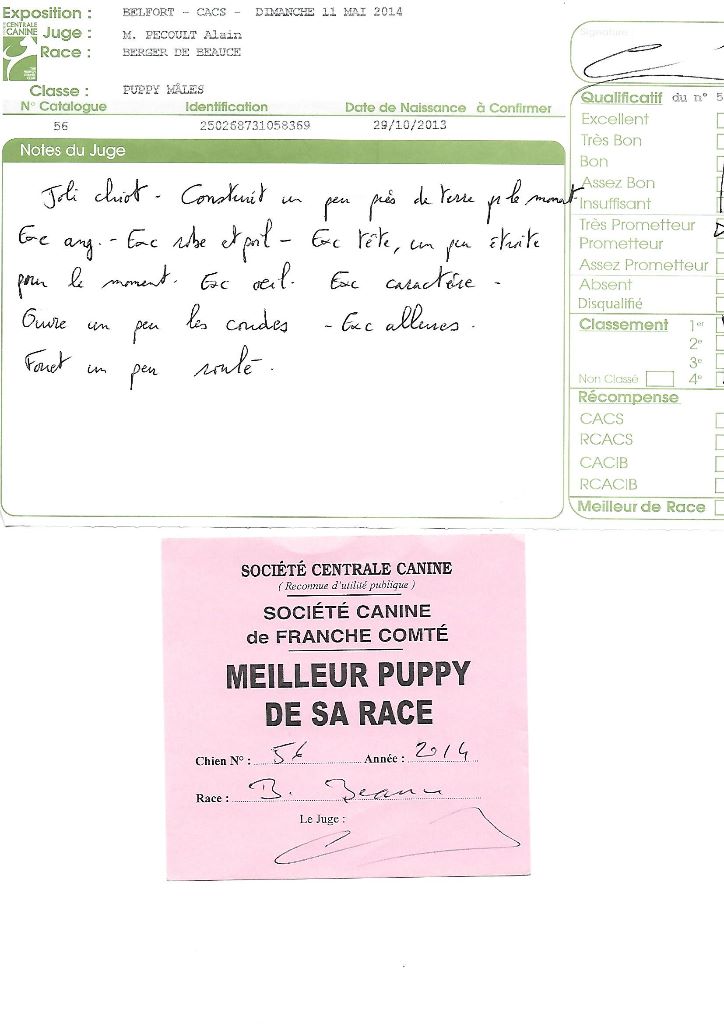 Exposition : BELFORT - CACS - DIMANCHE 11 MAI 2014
CENTRALE
CANINE
Juge : M. PECOULT Alain
Race : BERGER DE BEAUCE
Classe : PUPPY MÂLES
N° Catalogue Identification Date de Naissance à Confirmer
56 250268731058369 29/10/2013
Notes du Juge
Joli chiot - Construit un peu près de terre pr le moment.
Exc ang. - Exc robe et poil - Exc tête, un peu étroite
pour le moment. Exc oeil. Exc caractère -
Ouvre un peu les coudes - Exc allures.
Fouet un peu roulé.
Signature
Qualificatif du n° 5
Excellent
Très Bon
Bon
Assez Bon
Insuffisant
Très Prometteur
Prometteur
Assez Prometteur
Absent
Disqualifié
Classement 1er
2e
3e
Non Classé 4e
Récompense
CACS
RCACS
CACIB
RCACIB
Meilleur de Race
SOCIÉTÉ CENTRALE CANINE
( Reconnue d'utilité publique )
SOCIÉTÉ CANINE
de FRANCHE COMTÉ
MEILLEUR PUPPY
DE SA RACE
Chien N° : 56 Année : 2014
Race : B. Beauce
Le Juge :